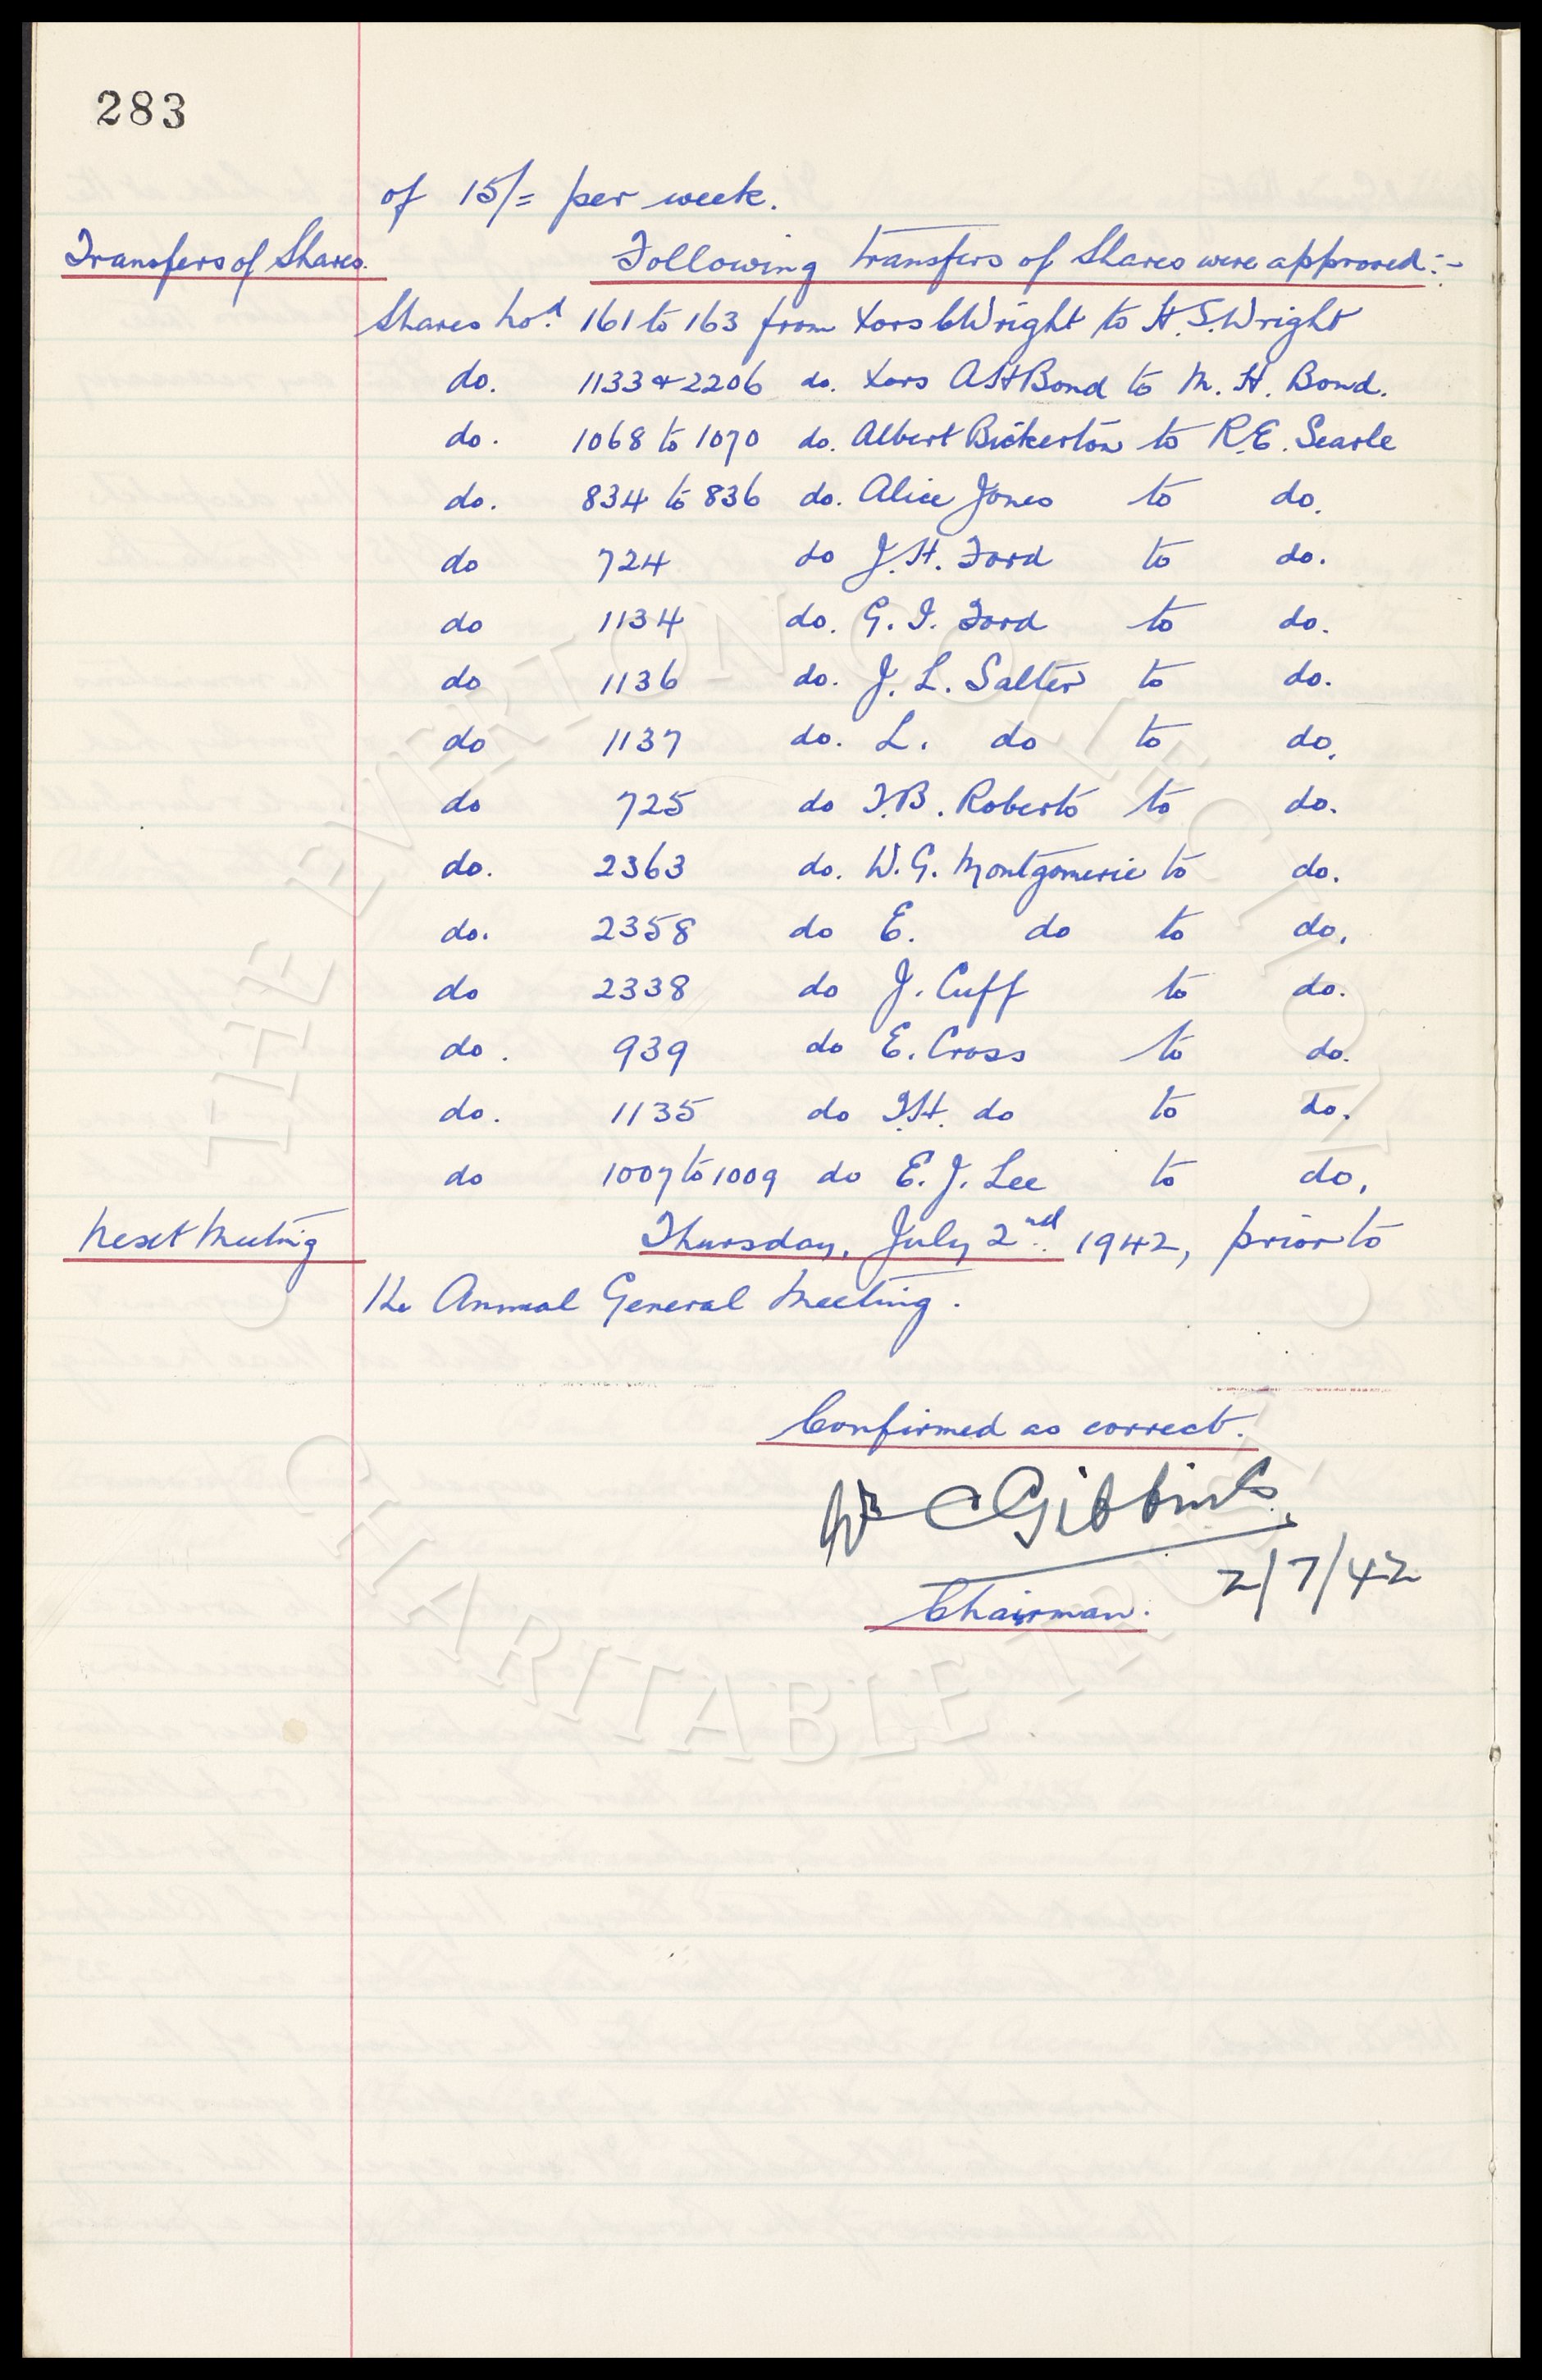 283
of 15/= per week.
Transfers of Shares. Following transfers of Shares were approved:-
Shares Nos. 161 to 163 from Xors C Wright to H. S. Wright
do. 1133 & 2206 do. Xors A H Bond to M. H. Bond.
do. 1068 to 1070 do. Albert Bickerton to R.E. Searle
do. 834 to 836 do. Alice Jones to do.
do 724 do J. H. Ford to do.
do 1134 do. G. I. Ford to do.
do 1136 do. J. L. Salter to do.
do 1137 do. L. do to do.
do 725 do T.B. Roberts to do.
do. 2363 do. W. G. Montgomerie to do.
do. 2358 do E. do to do.
do 2338 do J. Cuff to do.
do. 939 do E. Cross to do.
do. 1135 do T.H. do to do.
do 1007 to 1009 do E. J. Lee to do.
Next Meeting Thursday, July 2nd. 1942, prior to
the Annual General Meeting.
Confirmed as correct.
Wm C Gibbins
2/7/42
Chairman.
THE EVERTON COLLECTION
CHARITABLE TRUST